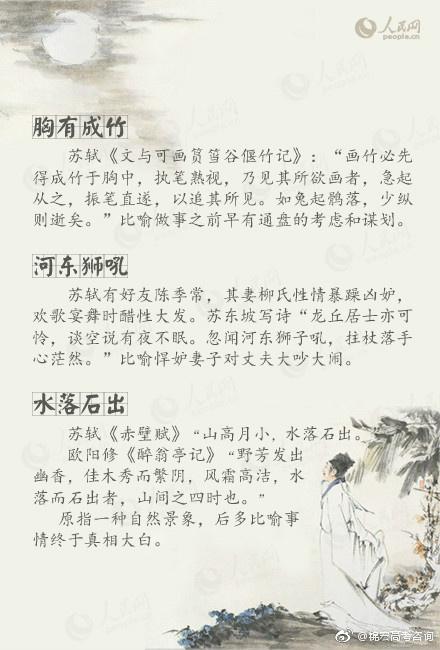 人民网
people.cn
胸有成竹
苏轼《文与可画筼筜谷偃竹记》：“画竹必先
得成竹于胸中，执笔熟视，乃见其所欲画者，急起
从之，振笔直遂，以追其所见。如兔起鹘落，少纵
则逝矣。”比喻做事之前早有通盘的考虑和谋划。
河东狮吼
苏轼有好友陈季常，其妻柳氏性情暴躁凶妒，
欢歌宴舞时醋性大发。苏东坡写诗“龙丘居士亦可
怜，谈空说有夜不眠。忽闻河东狮子吼，拄杖落手
心茫然。”比喻悍妒妻子对丈夫大吵大闹。
水落石出
苏轼《赤壁赋》“山高月小，水落石出。
欧阳修《醉翁亭记》“野芳发出
幽香，佳木秀而繁阴，风霜高洁，水
落而石出者，山间之四时也。”
原指一种自然景象，后多比喻事
情终于真相大白。